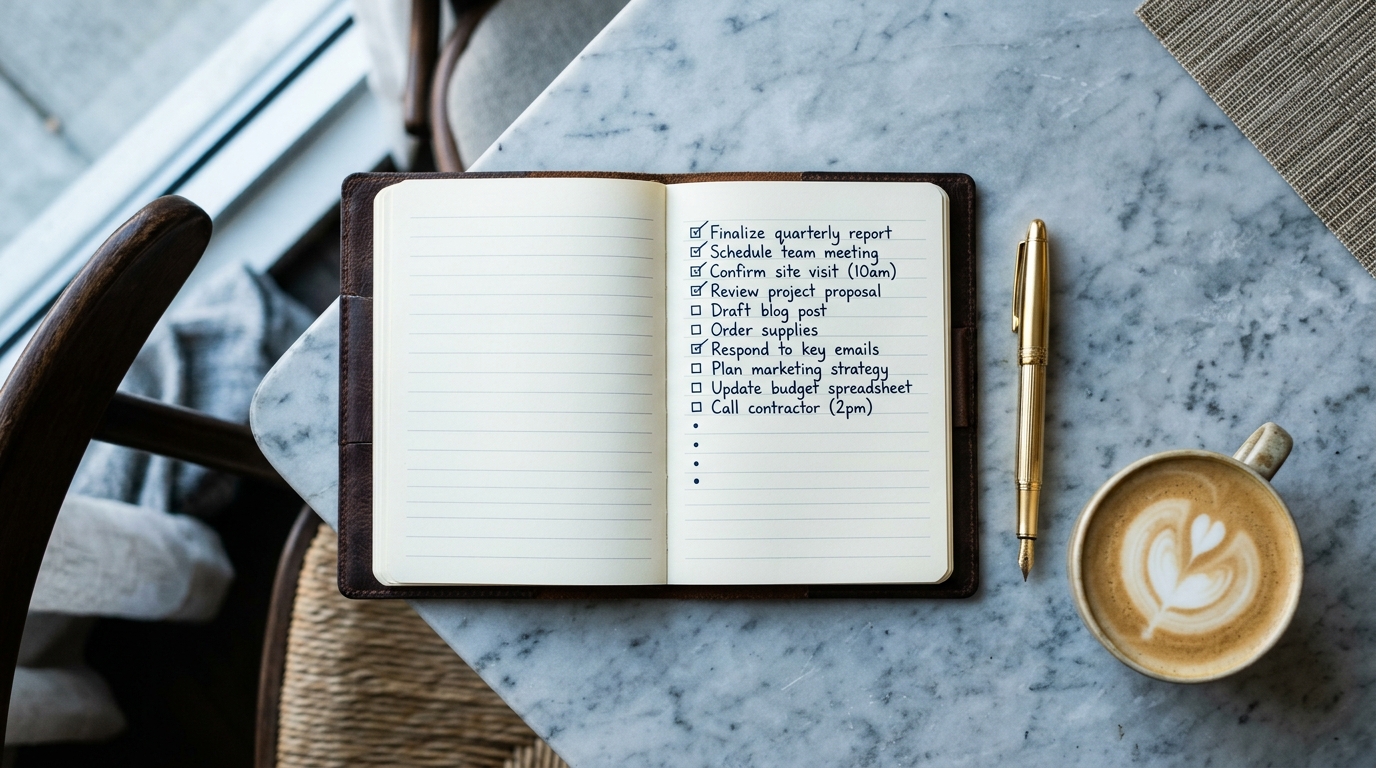 ☑ Finalize quarterly report
☑ Schedule team meeting
☑ Confirm site visit (10am)
☑ Review project proposal
☐ Draft blog post
☐ Order supplies
☑ Respond to key emails
☐ Plan marketing strategy
☐ Update budget spreadsheet
☐ Call contractor (2pm)
•
•
•
•